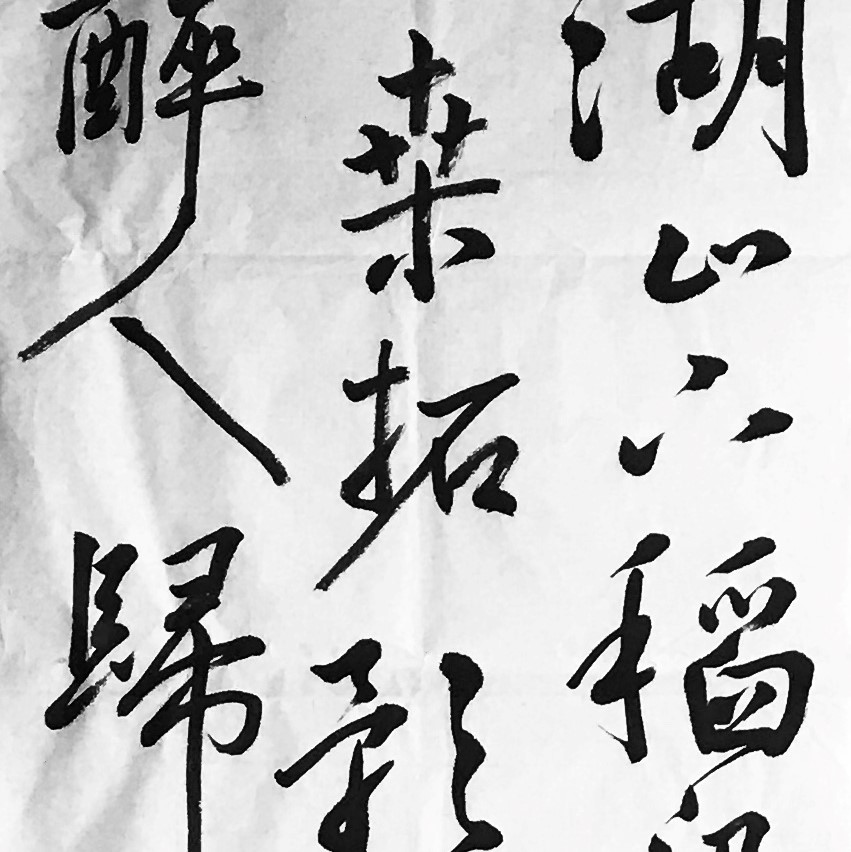 湖山下稻
桒柘影
醉人歸